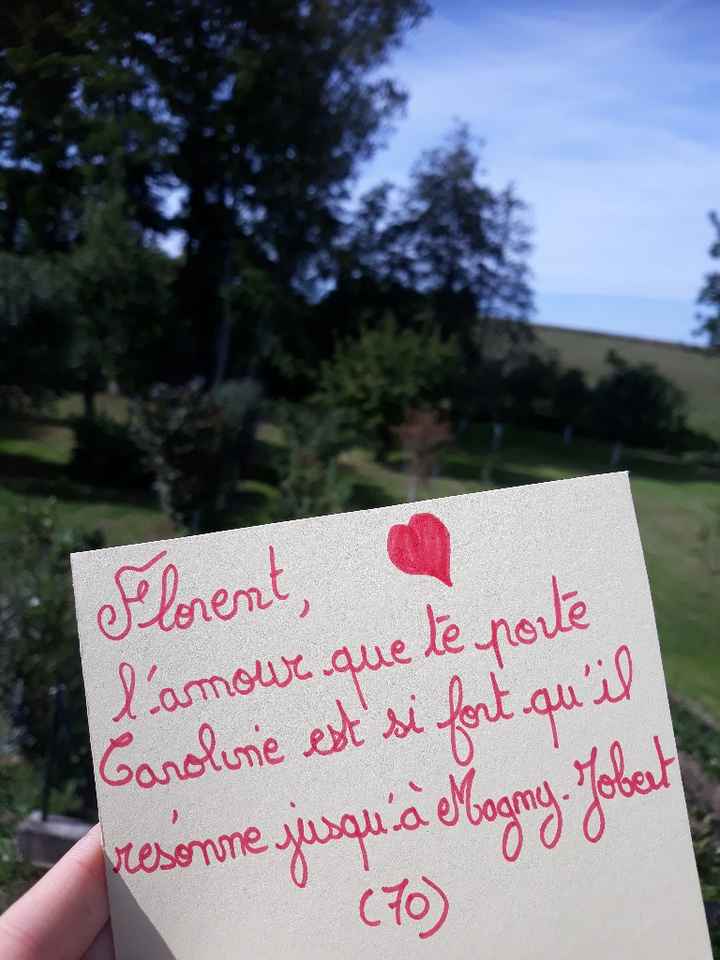 Florent,
l'amour que te porte
Caroline est si fort qu'il
résonne jusqu'à Magny-Jobert
(70)